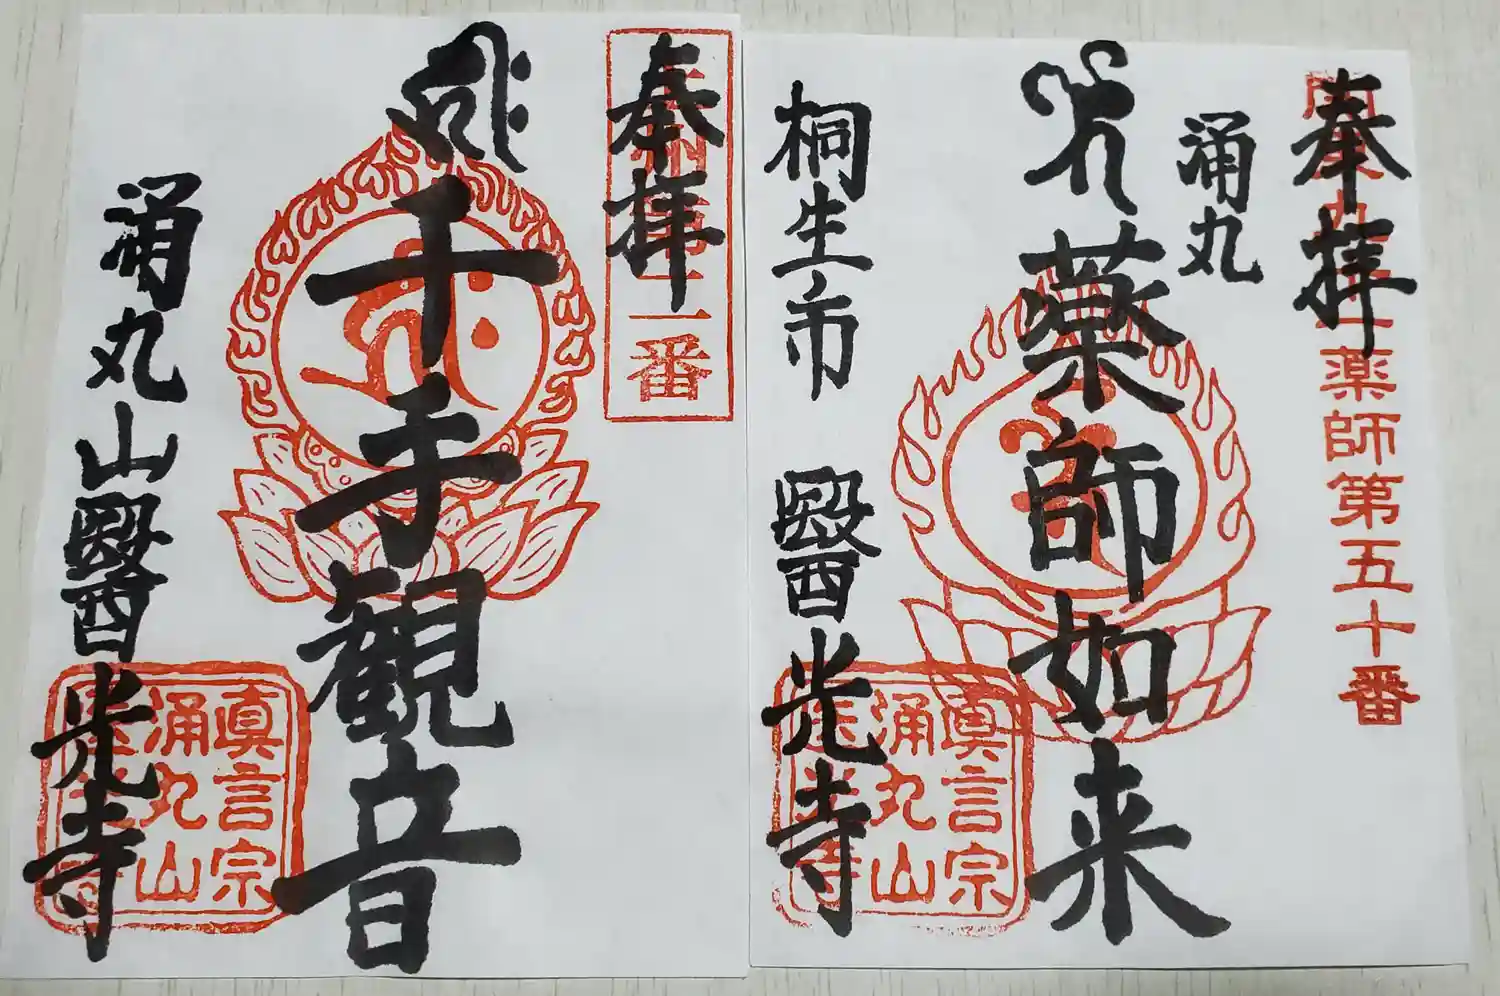 奉拝
関東九十一薬師第五十番
涌丸
薬師如来
桐生市
醫光寺
眞言宗
涌丸山
醫光寺
奉拝
番
千手観音
涌丸山醫光寺
眞言宗
涌丸山
醫光寺